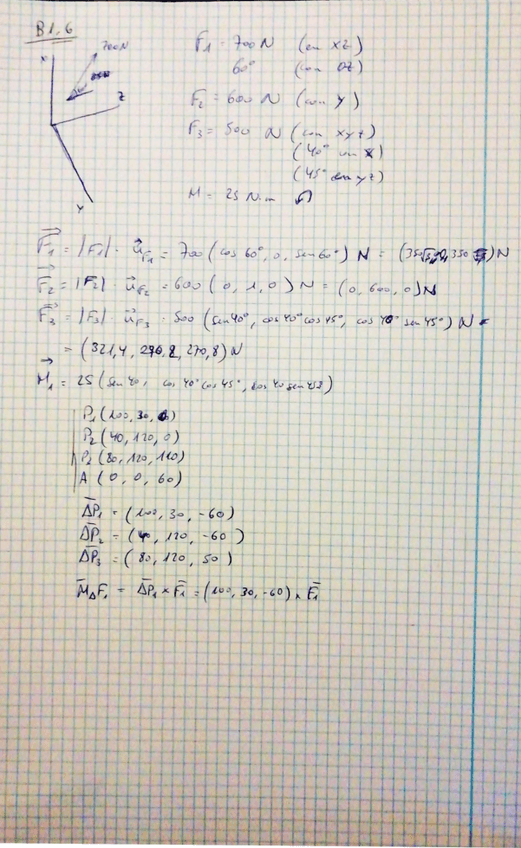 B1.6
700N
X
Z
Y
F1 = 700 N (en xz)
60° (con OZ)
F2 = 600 N (con y)
F3 = 500 N (con xyz)
(40° con x)
(45° con yz)
M = 25 N·m
F1 = |F1| · u F1 = 700 (cos 60°, 0, sen 60°) N = (350 , 0, 350 ) N
F2 = |F2| · u F2 = 600 (0, 1, 0) N = (0, 600, 0) N
F3 = |F3| · u F3 · 500 (sen 40°, cos 40° cos 45°, cos 40° sen 45°) N =
= (321,4, 270,8, 270,8) N
M1 = 25 (sen 40, cos 40° cos 45°, cos 40 sen 45°)
P1 (100, 30, 0)
P2 (40, 120, 0)
P3 (80, 120, 110)
A (0, 0, 60)
AP1 = (100, 30, -60)
AP2 = (40, 120, -60)
AP3 = (80, 120, 50)
M A F1 = AP1 x F1 = (100, 30, -60) x F1